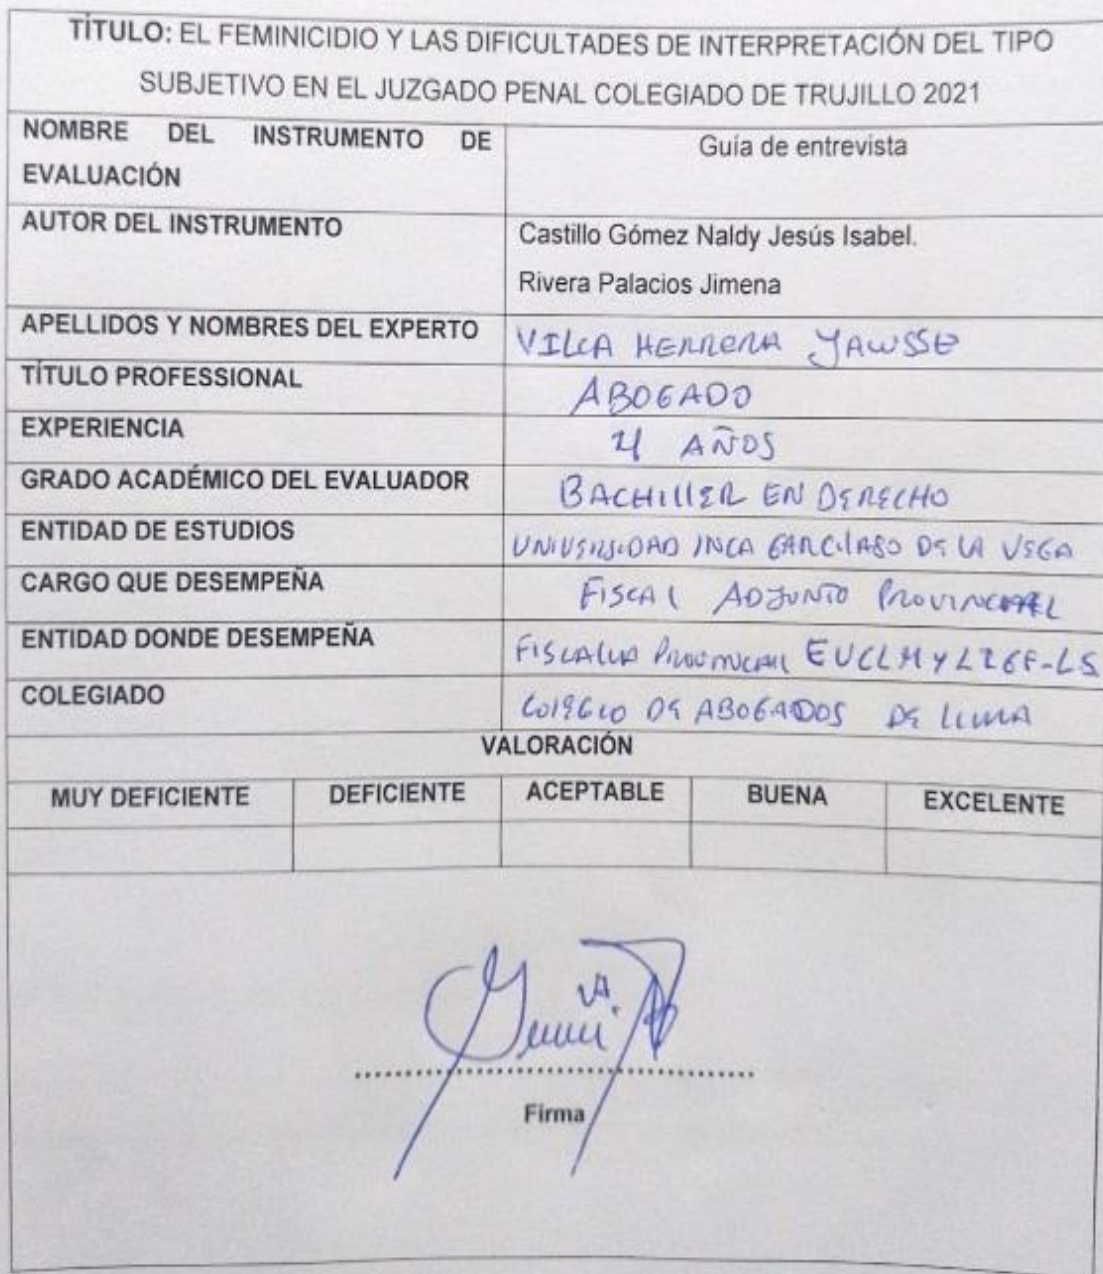 TÍTULO: EL FEMINICIDIO Y LAS DIFICULTADES DE INTERPRETACIÓN DEL TIPO
SUBJETIVO EN EL JUZGADO PENAL COLEGIADO DE TRUJILLO 2021
NOMBRE DEL INSTRUMENTO DE
EVALUACIÓN
Guía de entrevista
AUTOR DEL INSTRUMENTO
Castillo Gómez Naldy Jesús Isabel.
Rivera Palacios Jimena
APELLIDOS Y NOMBRES DEL EXPERTO
HERRERA
TÍTULO PROFESSIONAL
ABOGADO
EXPERIENCIA
AÑOS
GRADO ACADÉMICO DEL EVALUADOR
BACHILLER EN DERECHO
ENTIDAD DE ESTUDIOS
UNIVERSIDAD INCA GARCILASO DE LA VEGA
CARGO QUE DESEMPEÑA
FISCAL ADJUNTO PROVINCIAL
ENTIDAD DONDE DESEMPEÑA
FISCALIA PROVINCIAL
COLEGIADO
COLEGIO DE ABOGADOS DE LIMA
VALORACIÓN
MUY DEFICIENTE DEFICIENTE ACEPTABLE BUENA EXCELENTE
Firma